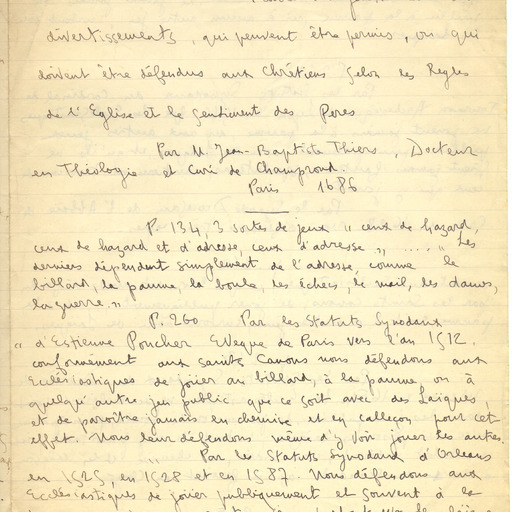 divertissements, qui peuvent être permis, ou qui
doivent être défendus aux Chrétiens selon les Règles
de l'Eglise et le sentiment des Peres
Par M. Jean-Baptiste Thiers, Docteur
en Théologie et Curé de Champrond.
Paris 1686
P. 134, 3 sortes de jeux " ceux de hazard,
ceux de hazard et d'adresse, ceux d'adresse " .... " Les
derniers dépendent simplement de l'adresse, comme le
billard, la paume, la boule, les Echecs, le mail, les dames,
la guerre."
P. 260 Par les Statuts Synodaux
" d'Estienne Poncher Eveque de Paris vers l'an 1512.
conformément aux saints Canons nous défendons aux
Ecclésiastiques de joüer au billard, à la paume ou à
quelqu'autre jeu public que ce soit avec des Laïques,
et de paroître jamais en chemise et en calleçon pour cet
effet. Nous leur défendons même d'y voir jouer les autres.
Par les Statuts Synodaux d'Orleans
en 1525, en 1528 et en 1587. Nous défendons aux
Ecclésiastiques de joüer publiquement et souvent à la